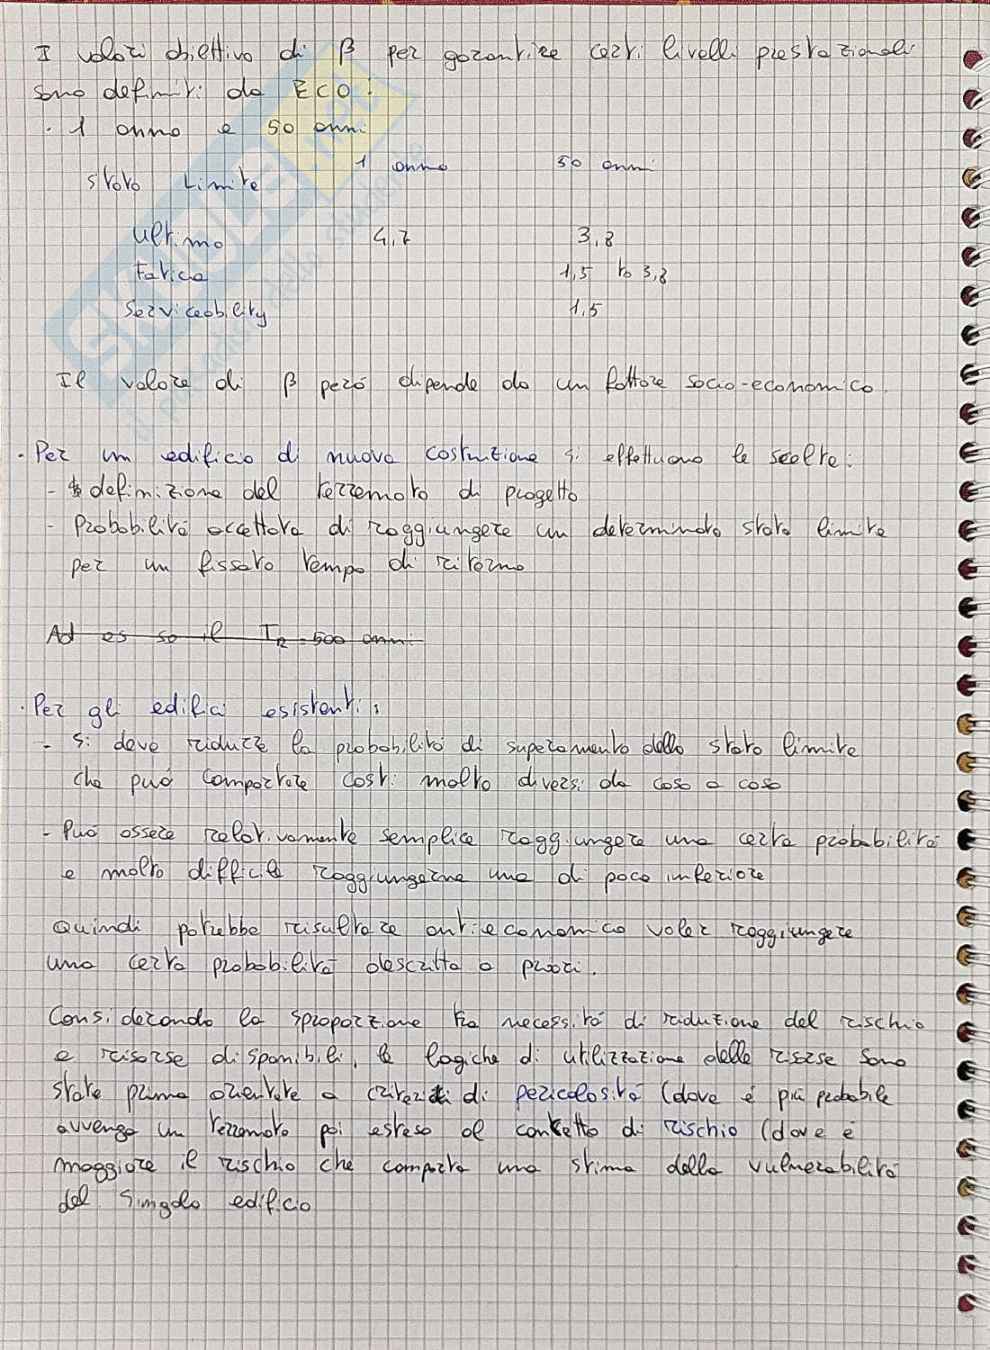 I valori obiettivo di β per garantire certi livelli prestazionali
sono definiti da ECO:
· 1 anno e 50 anni
1 anno 50 anni
Stato Limite
Ultimo 4,7 3,8
Fatica 1,5 to 3,8
Serviceability 1.5
Il valore di β però dipende da un fattore socio-economico.
· Per un edificio di nuova costruzione si effettuano le scelte:
- definizione del terremoto di progetto
- Probabilità accettata di raggiungere un determinato stato limite
per un fissato tempo di ritorno
Ad es se il TR = 500 anni
· Per gli edifici esistenti:
- Si deve ridurre la probabilità di superamento dello stato limite
che può comportare costi molto diversi da caso a caso
- Può essere relativamente semplice raggiungere una certa probabilità
e molto difficile raggiungerne una di poco inferiore
Quindi potrebbe risultare antieconomico voler raggiungere
una certa probabilità descritta a priori.
Considerando la sproporzione tra necessità di riduzione del rischio
e risorse disponibili, le logiche di utilizzazione delle risorse sono
state prima orientate a criteri di pericolosità (dove è più probabile
avvenga un terremoto poi esteso al concetto di rischio (dove è
maggiore il rischio che comporta una stima della vulnerabilità
del singolo edificio
SKUOLA.net